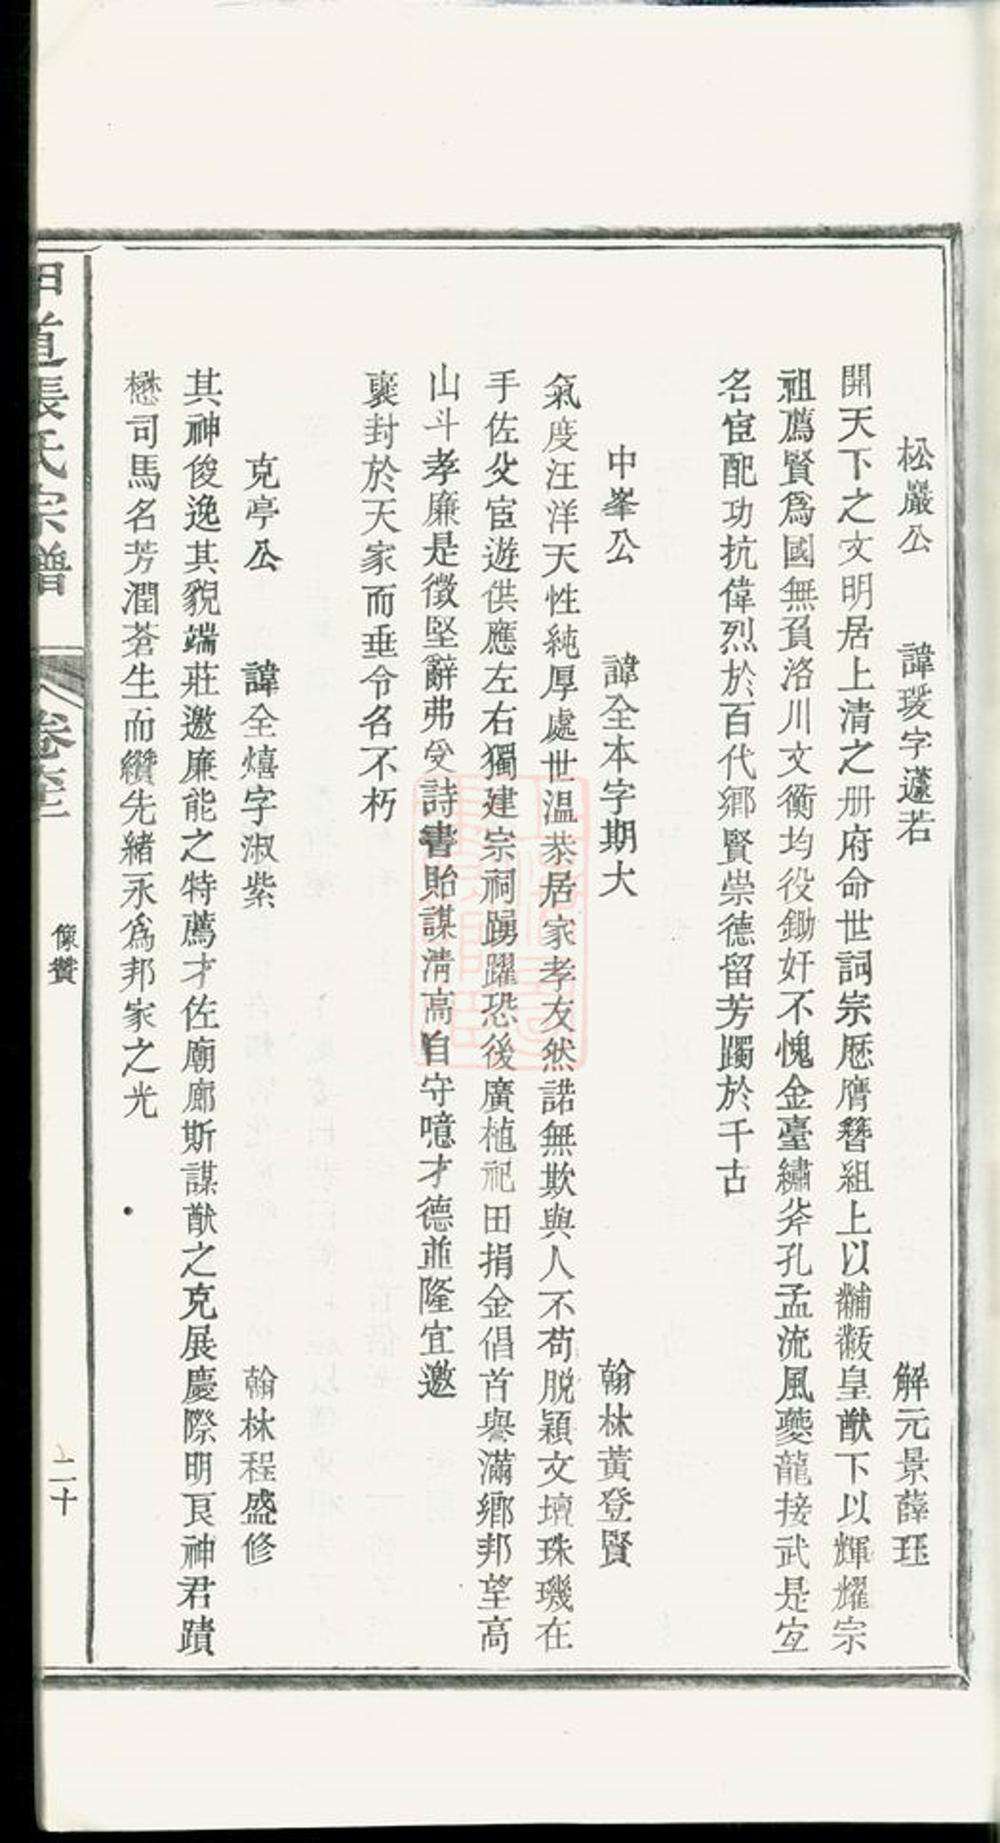 松巖公 諱璦字蘧若 解元景薛珏
開天下之文明居上清之册府命世詞宗歴膺簪組上以黼黻皇猷下以輝耀宗
祖薦賢爲國無負洛川文衡均役鋤奸不愧金臺繡斧孔孟流風夔龍接武是宜
名宦配功抗偉烈於百代鄉賢崇德留芳躅於千古
中峯公 諱全本字期大 翰林黃登賢
氣度汪洋天性純厚處世溫恭居家孝友然諾無欺與人不苟脱穎文壇珠璣在
手佐父宦遊供應左右獨建宗祠踴躍恐後廣植祀田捐金倡首譽滿鄉邦望高
山斗孝廉是徵堅辭弗受詩書貽謀清高自守噫才德並隆宜邀
襃封於天家而垂令名不朽
克亭公 諱全熺字淑紫 翰林程盛修
其神俊逸其貌端莊邀廉能之特薦才佐廟廊斯謀猷之克展慶際明良神君蹟
懋司馬名芳潤蒼生而纘先緒永爲邦家之光
甲道張氏宗譜 卷 像贊 二十